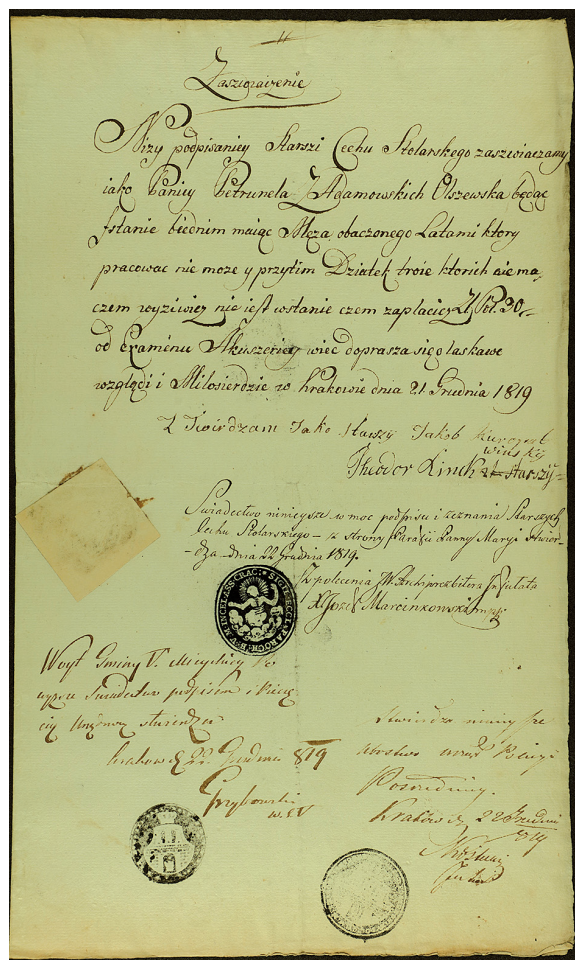 Zaswiatczenie
Nizy podpisaniey Starszi Cechu Stolarskego zaswiaczamy
iako Paniey Petrunela Z Adamowskich Olszewska będąc
fstanie biednim maiąc Męza obaczonego Latami ktory
pracowac nie moze y przytim Działek troie ktorich nie ma
czem wyziwiez nie iest wstanie czem zaplaciez Zł Pol. 30
od Examénu Akuszeriey wiec doprasza się o laskawe
względi i Milosierdzie w Krakowie dnia 21 Grudnia 1819
Z Twirdzam Jako starszy Jakob
Theodor Kinch starszy
Swiadectwo ninieysze w moc podpisu i zeznania Starszych
Cechu Stolarskiego z strony Parafii Panny Maryi stwier-
-dza dnia 22 Grudnia 1819.
Z polecenia JW Archiprezbitera Infułata
X Jozef Marcinkowski
Woyt Gminy V. Mieyskiey
wyzsze Swiadectwo podpisem i Piecze
cią Urzędową stwierdza
Krakow d. 22 Grudnia 819
w. G. V
Stwierdza ninieysze
Krakow d. 22 Grudnia
819